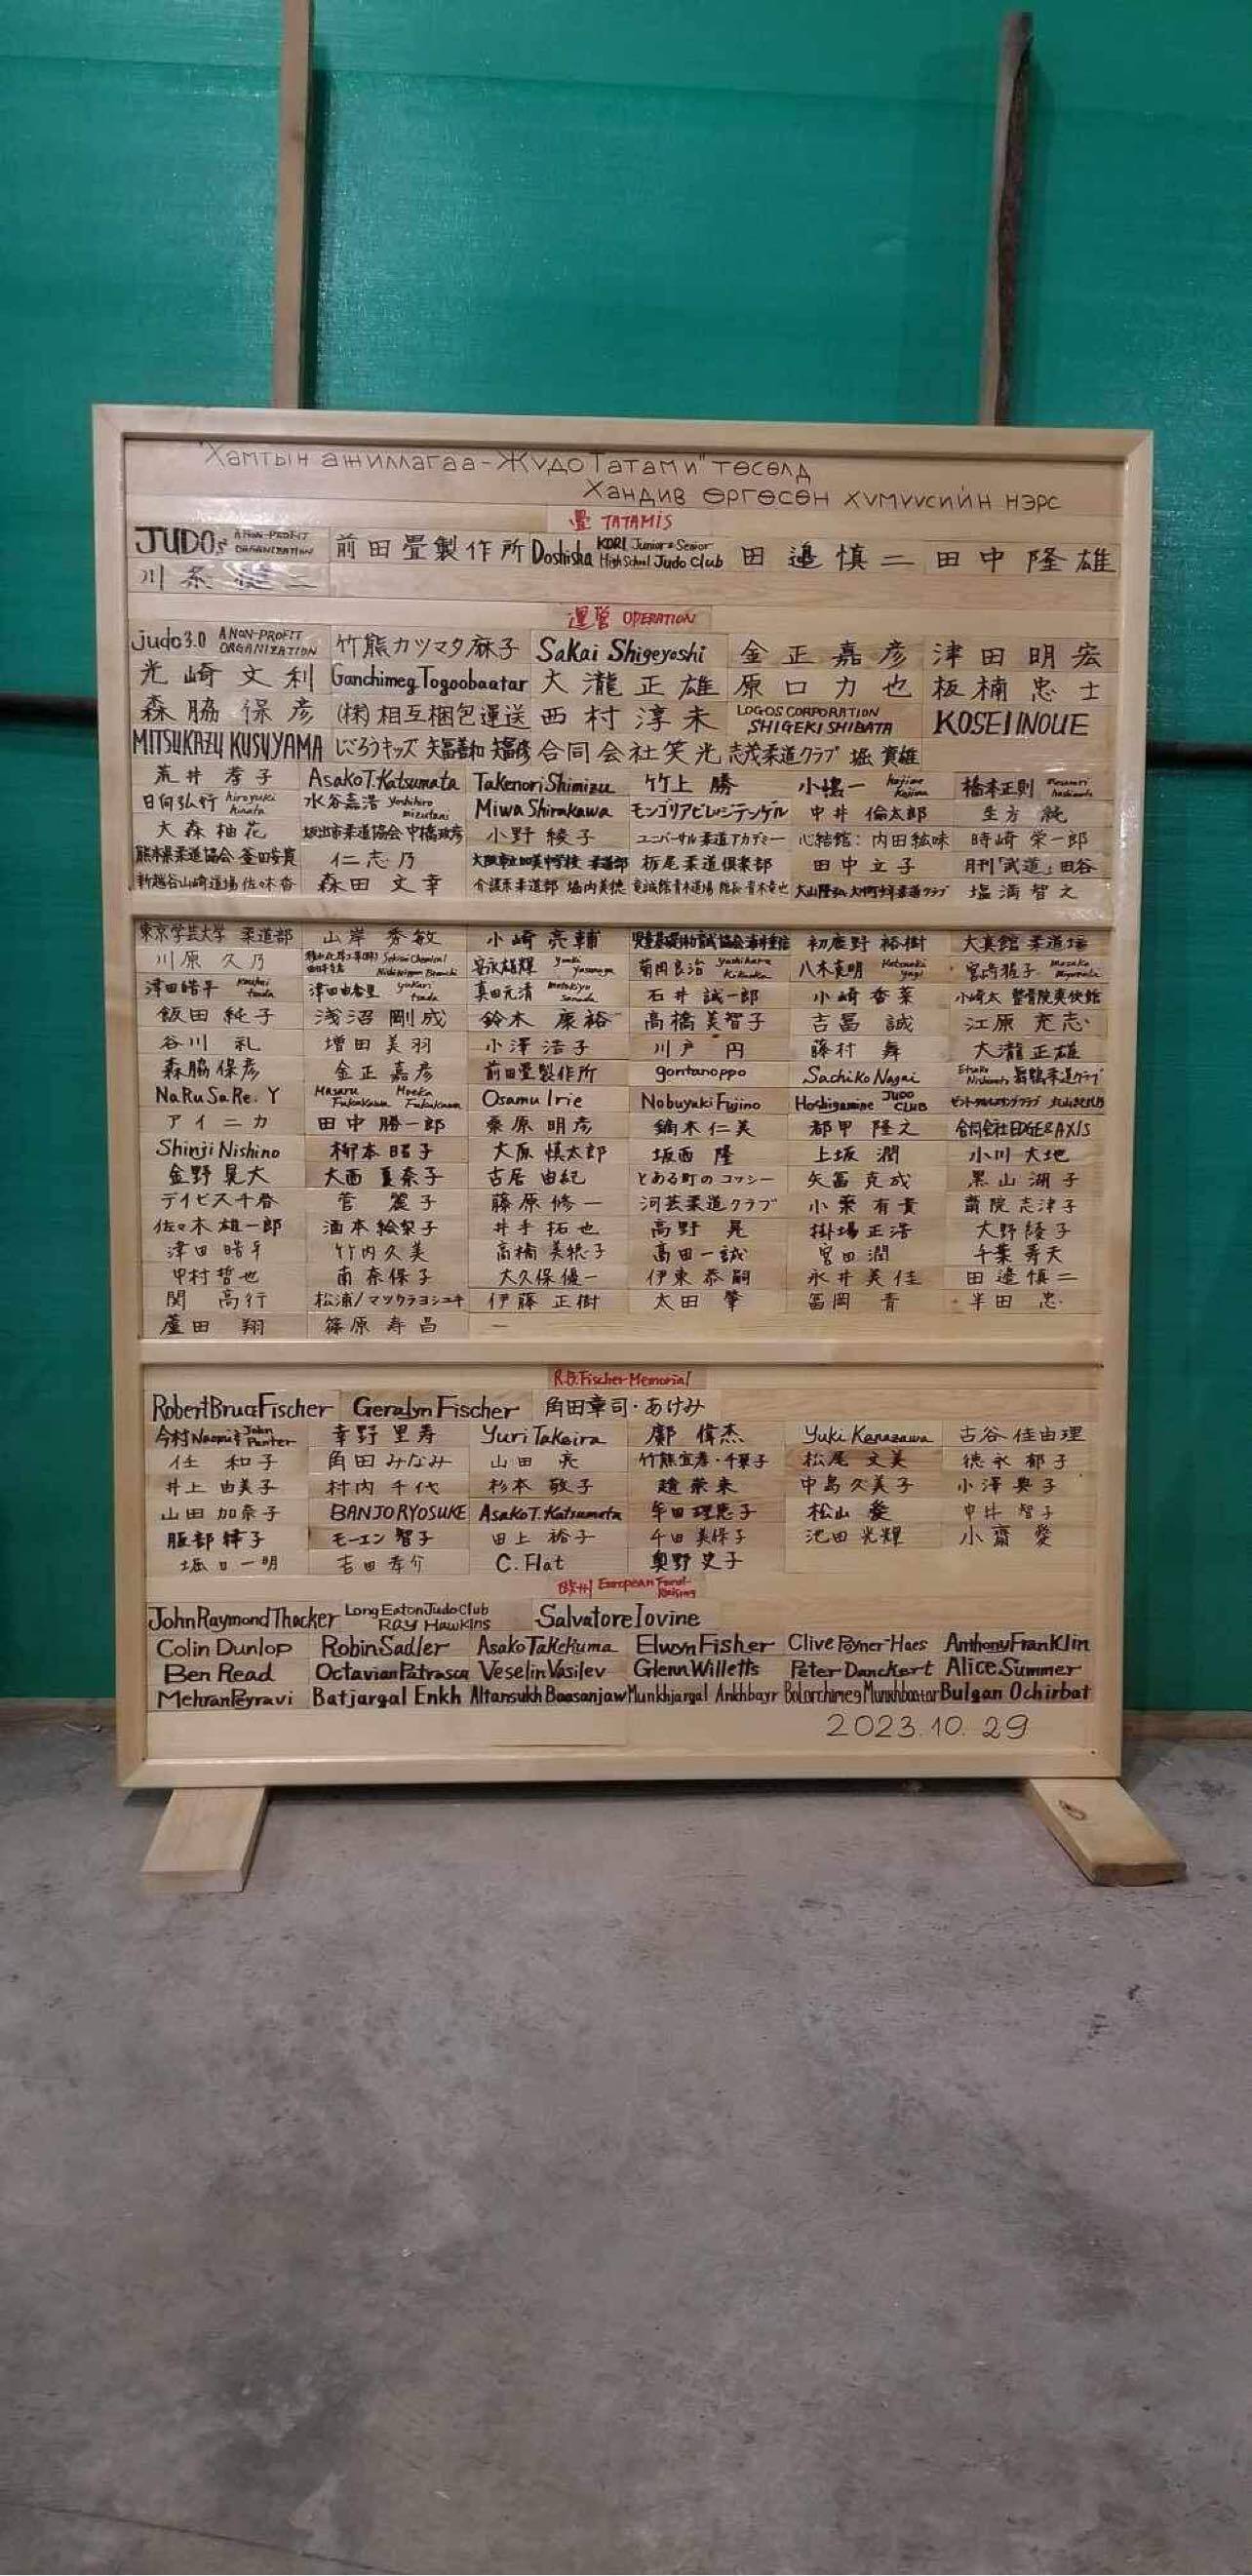 "Хамтын ажиллагаа-Жудо Татами" төсөлд
Хандив өргөсөн хүмүүсийн нэрс
畳 TATAMIS
JUDOs A NON-PROFIT ORGANIZATION 前田畳製作所 Doshisha KORI Junior & Senior High School Judo Club 田邉慎二 田中隆雄
川条健二
運営 OPERATION
judo3.0 A NON-PROFIT ORGANIZATION 竹熊カツマタ麻子 Sakai Shigeyoshi 金正嘉彦 津田明宏
光崎文利 Ganchimeg Togoobaatar 大瀧正雄 原口力也 板楠忠士
森脇保彦 (株)相互梱包運送 西村淳未 LOGOS CORPORATION SHIGEKI SHIBATA KOSEI INOUE
MITSUKAZU KUSUYAMA じごろうキッズ 合同会社笑光 志茂柔道クラブ 堀資雄
荒井孝子 Asako T. Katsumata Takenori Shimizu 竹上勝 小嶋一 hajime Kojima 橋本正則
日向弘行 hiroyuki hinata 水谷嘉浩 yoshihiro mizutani Miwa Shirakawa モンゴリアビレッジテンゲル 中井倫太郎 生方純
大森柚花 坂出市柔道協会 中橋政彦 小野綾子 ユニバーサル柔道アカデミー 心結館:内田絵味 時崎栄一郎
熊本県柔道協会 仁志乃 柔道部 栃尾柔道倶楽部 田中立子 月刊「武道」田谷
新越谷山崎道場 佐々木香 森田文幸 介護系柔道部 堀内美徳 竜誠館青木道場 館長 青木竜也 塩満智之
東京学芸大学 柔道部 山岸秀敏 小崎亮輔 初鹿野裕樹 大真館柔道場
川原久乃 Sekisui Chemical 安永雄輝 yuuki yasunaga 菊岡良治 yoshiharu Kikuoka 八木克明 Katsuaki yagi 宮崎雅子
津田晧平 Kouhei tsuda 津田由香里 yukari tsuda 真田元清 motokiyo sanada 石井誠一郎 小崎香菜 小崎太 整骨院爽快館
飯田純子 浅沼剛成 鈴木康裕 高橋美智子 吉冨誠 江原充志
谷川礼 増田美羽 小澤浩子 川戸円 藤村舞 大瀧正雄
森脇保彦 金正嘉彦 前田畳製作所 gontanoppo Sachiko Nagai Etsuko Nishimoto 舞鶴柔道クラブ
NaRuSaRe.Y Masaru Fukukawa Moeka Fukukawa Osamu Irie Nobuyuki Fujino Hoshigamine JUDO CLUB
アイニカ 田中勝一郎 桑原明彦 鏑木仁美 都甲隆之 合同会社EDGE&AXIS
Shinji Nishino 柳本昭子 大原慎太郎 坂西隆 上坂潤 小川大地
金野晃大 大西夏奈子 古居由紀 とある町のコッシー 矢冨克成 黒山湖子
デイビス千春 菅麗子 藤原修一 河芸柔道クラブ 小栗有貴 薗院志津子
佐々木雄一郎 酒本絵梨子 井手拓也 高野晃 掛場正浩 大野陵子
津田晧平 竹内久美 高橋美穂子 高田一誠 宮田潤 千葉寿天
中村哲也 南奈保子 大久保優一 伊東恭嗣 永井美佳 田邉慎二
関高行 松浦/マツウラヨシユキ 伊藤正樹 太田肇 冨岡青 半田忠
蘆田翔 篠原寿昌
R.B. Fischer Memorial
Robert Bruce Fischer Geralyn Fischer 角田章司・あけみ
今村Naomi & John Panter 幸野里寿 Yuri Takeira 鄭偉杰 Yuki Kanazawa 古谷佳由理
任和子 角田みなみ 山田亮 竹熊宜孝・千葉子 松尾文美 徳永郁子
井上由美子 村内千代 杉本敬子 趙栄来 中島久美子 小澤典子
山田加奈子 BANJO RYOSUKE Asako T. Katsumata 牟田理恵子 松山愛 中井智子
服部律子 モーエン智子 田上裕子 千田美保子 池田光輝 小齋愛
堀口一明 吉田孝介 C. Flat 奥野史子
欧州 European Fund-Raising
John Raymond Thacker Long Eaton Judo Club RAY HAWKINS Salvatore Iovine
Colin Dunlop Robin Sadler Asako Takekuma Elwyn Fisher Clive Poyner-Haes Anthony Franklin
Ben Read Octavian Patrasca Veselin Vasilev Glenn Willetts Peter Danckert Alice Summer
Mehran Peyravi Batjargal Enkh Altansukh Baasanjaw Munkhjargal Ankhbayr Bolorchimeg Munkhbaatar Bulgan Ochirbat
2023.10.29